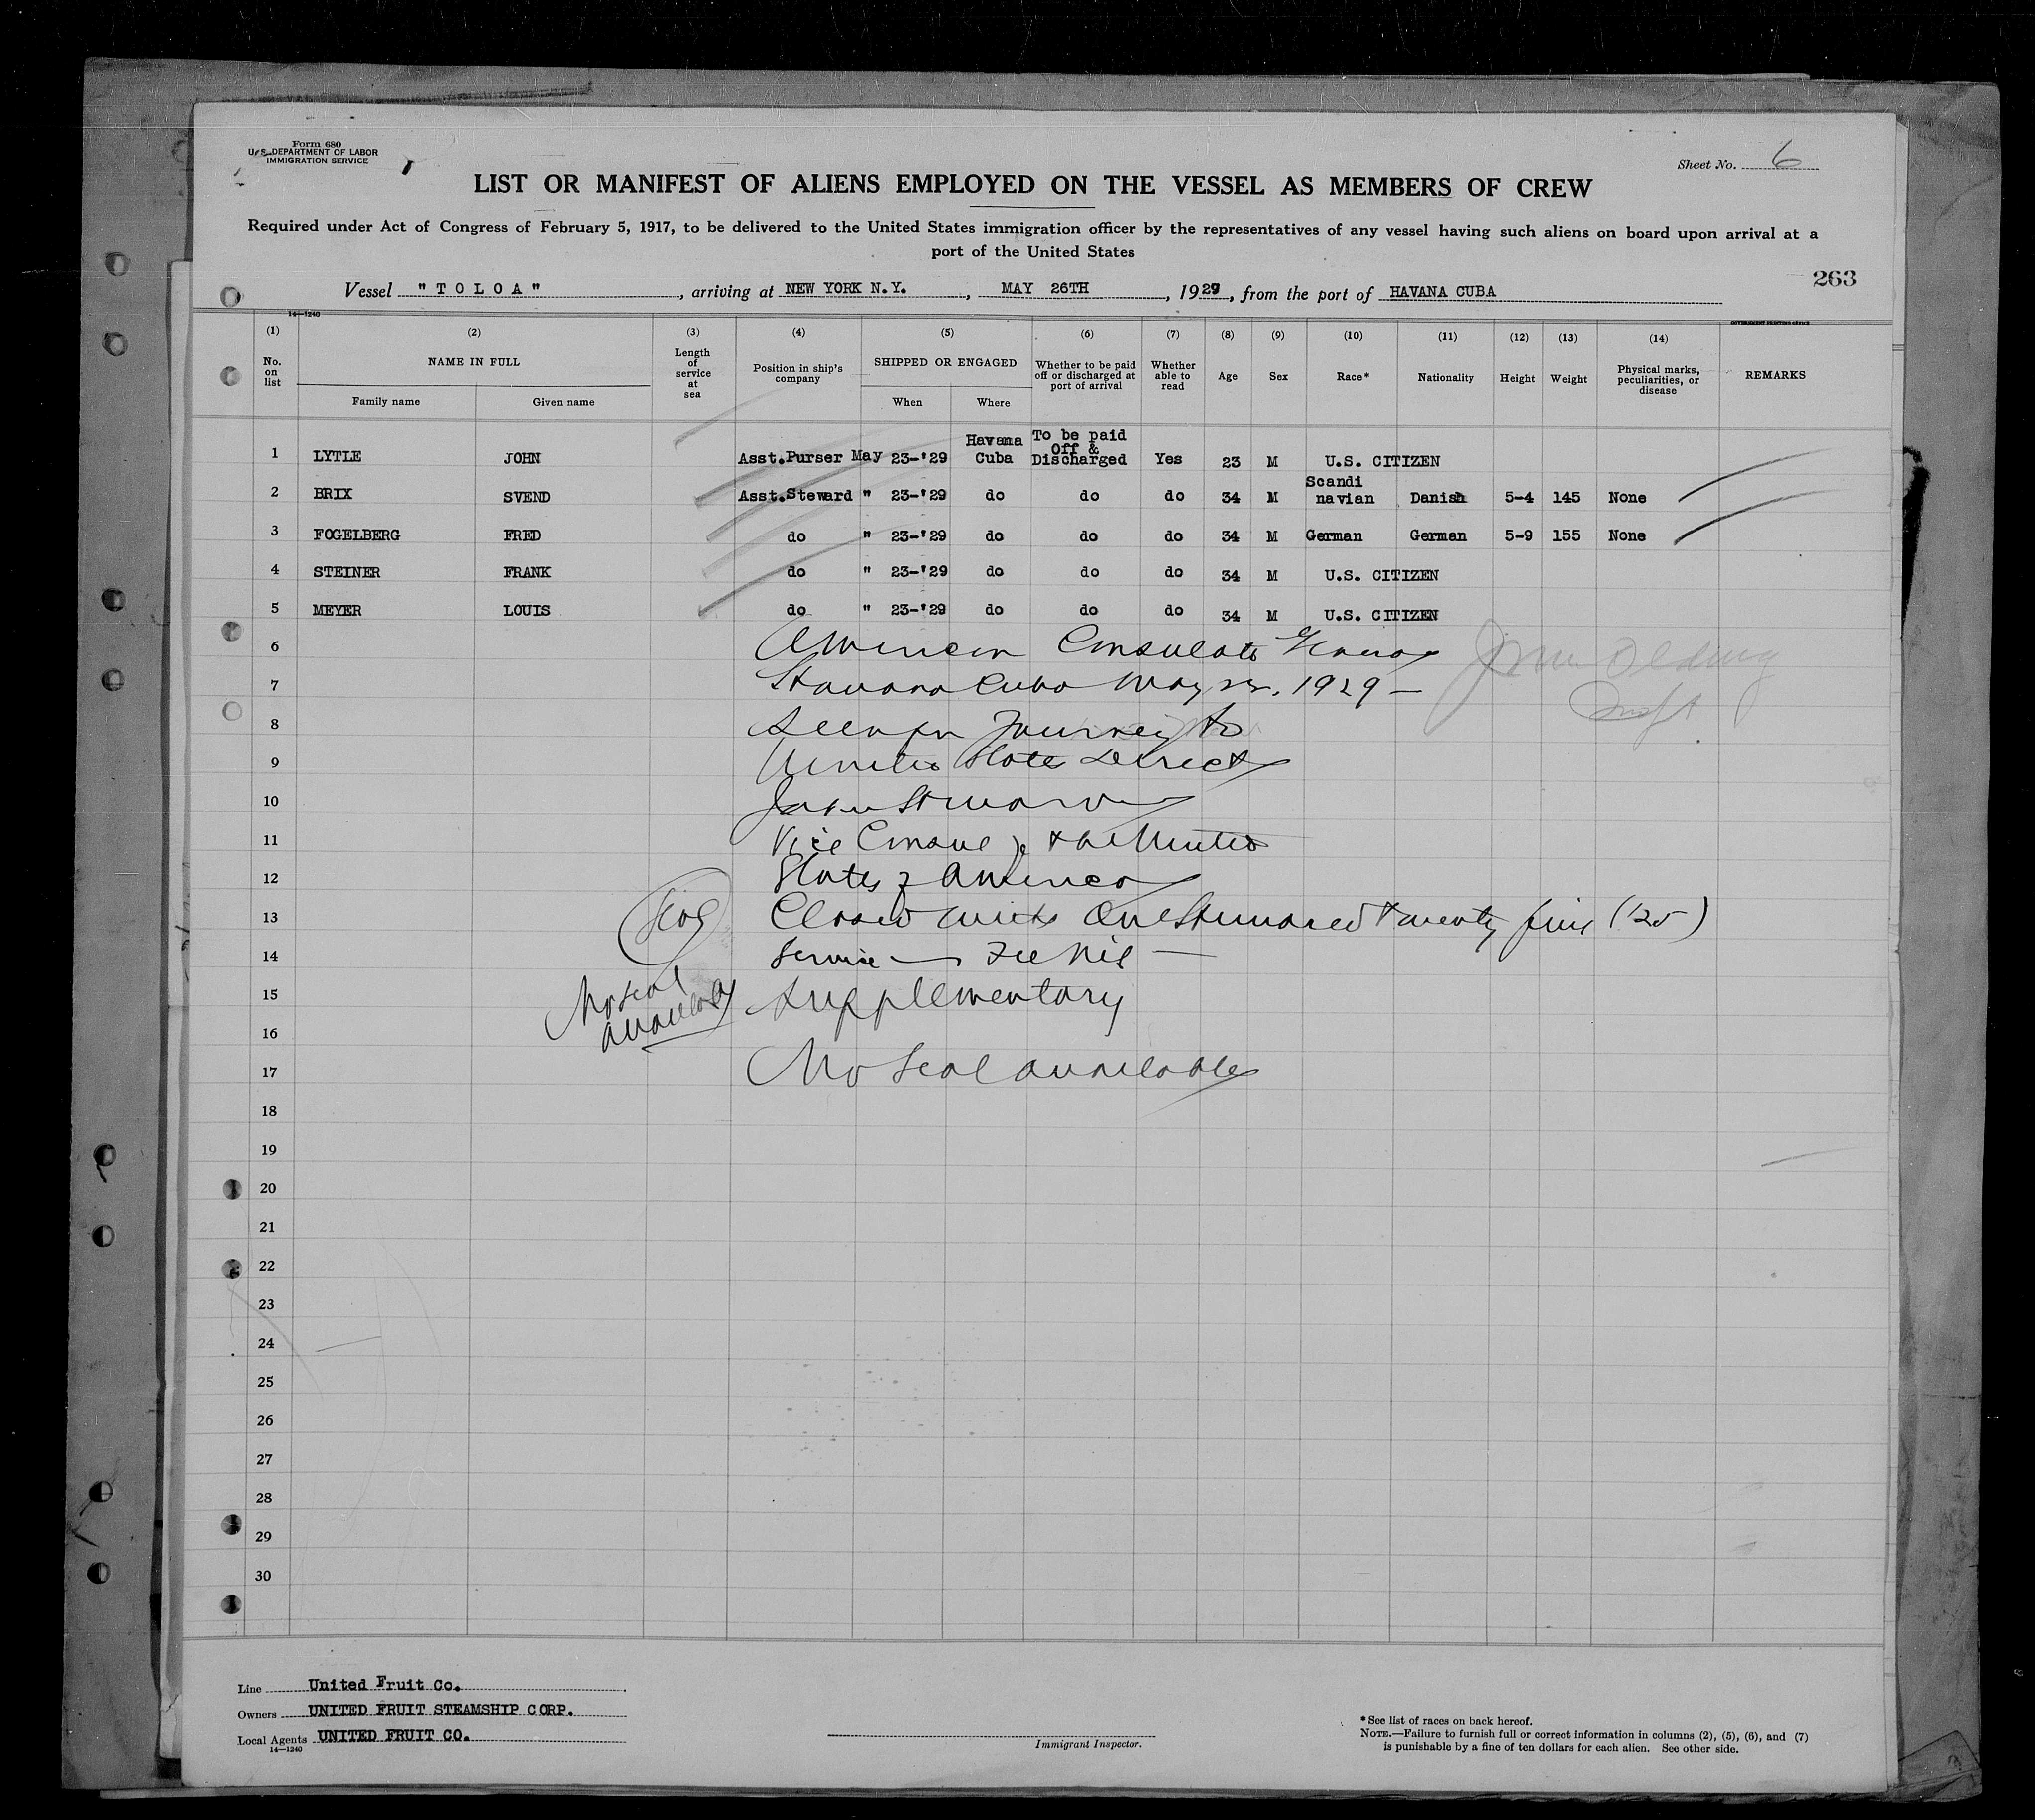 Form 680
U.S. DEPARTMENT OF LABOR
IMMIGRATION SERVICE
Sheet No. 6
LIST OR MANIFEST OF ALIENS EMPLOYED ON THE VESSEL AS MEMBERS OF CREW
Required under Act of Congress of February 5, 1917, to be delivered to the United States immigration officer by the representatives of any vessel having such aliens on board upon arrival at a
port of the United States
263
Vessel "TOLOA", arriving at NEW YORK N.Y., MAY 26TH, 1929, from the port of HAVANA CUBA
14—1240 GOVERNMENT PRINTING OFFICE
(1) (2) (3) (4) (5) (6) (7) (8) (9) (10) (11) (12) (13) (14)
No. on list NAME IN FULL Length of service at sea Position in ship's company SHIPPED OR ENGAGED Whether to be paid off or discharged at port of arrival Whether able to read Age Sex Race* Nationality Height Weight Physical marks, peculiarities, or disease REMARKS
Family name Given name When Where
1 LYTLE JOHN Asst.Purser May 23-'29 Havana Cuba To be paid Off & Discharged Yes 23 M U.S. CITIZEN
2 BRIX SVEND Asst.Steward " 23-'29 do do do 34 M Scandinavian Danish 5-4 145 None
3 FOGELBERG FRED do " 23-'29 do do do 34 M German German 5-9 155 None
4 STEINER FRANK do " 23-'29 do do do 34 M U.S. CITIZEN
5 MEYER LOUIS do " 23-'29 do do do 34 M U.S. CITIZEN
6 American Consulate General
7 Havana Cuba May 23, 1929 —
8 Seen for Journey to
9 United States Direct
10
11 Vice Consul of the United
12 States of America
13 Seal Closed with One Hundred twenty five (125)
14 Service — Fee Nil —
15 No seal available Supplementary
16
17 No Seal available
18
19
20
21
22
23
24
25
26
27
28
29
30
Line United Fruit Co.
Owners UNITED FRUIT STEAMSHIP CORP.
Local Agents UNITED FRUIT CO.
14—1240
Immigrant Inspector.
*See list of races on back hereof.
NOTE.—Failure to furnish full or correct information in columns (2), (5), (6), and (7)
is punishable by a fine of ten dollars for each alien. See other side.